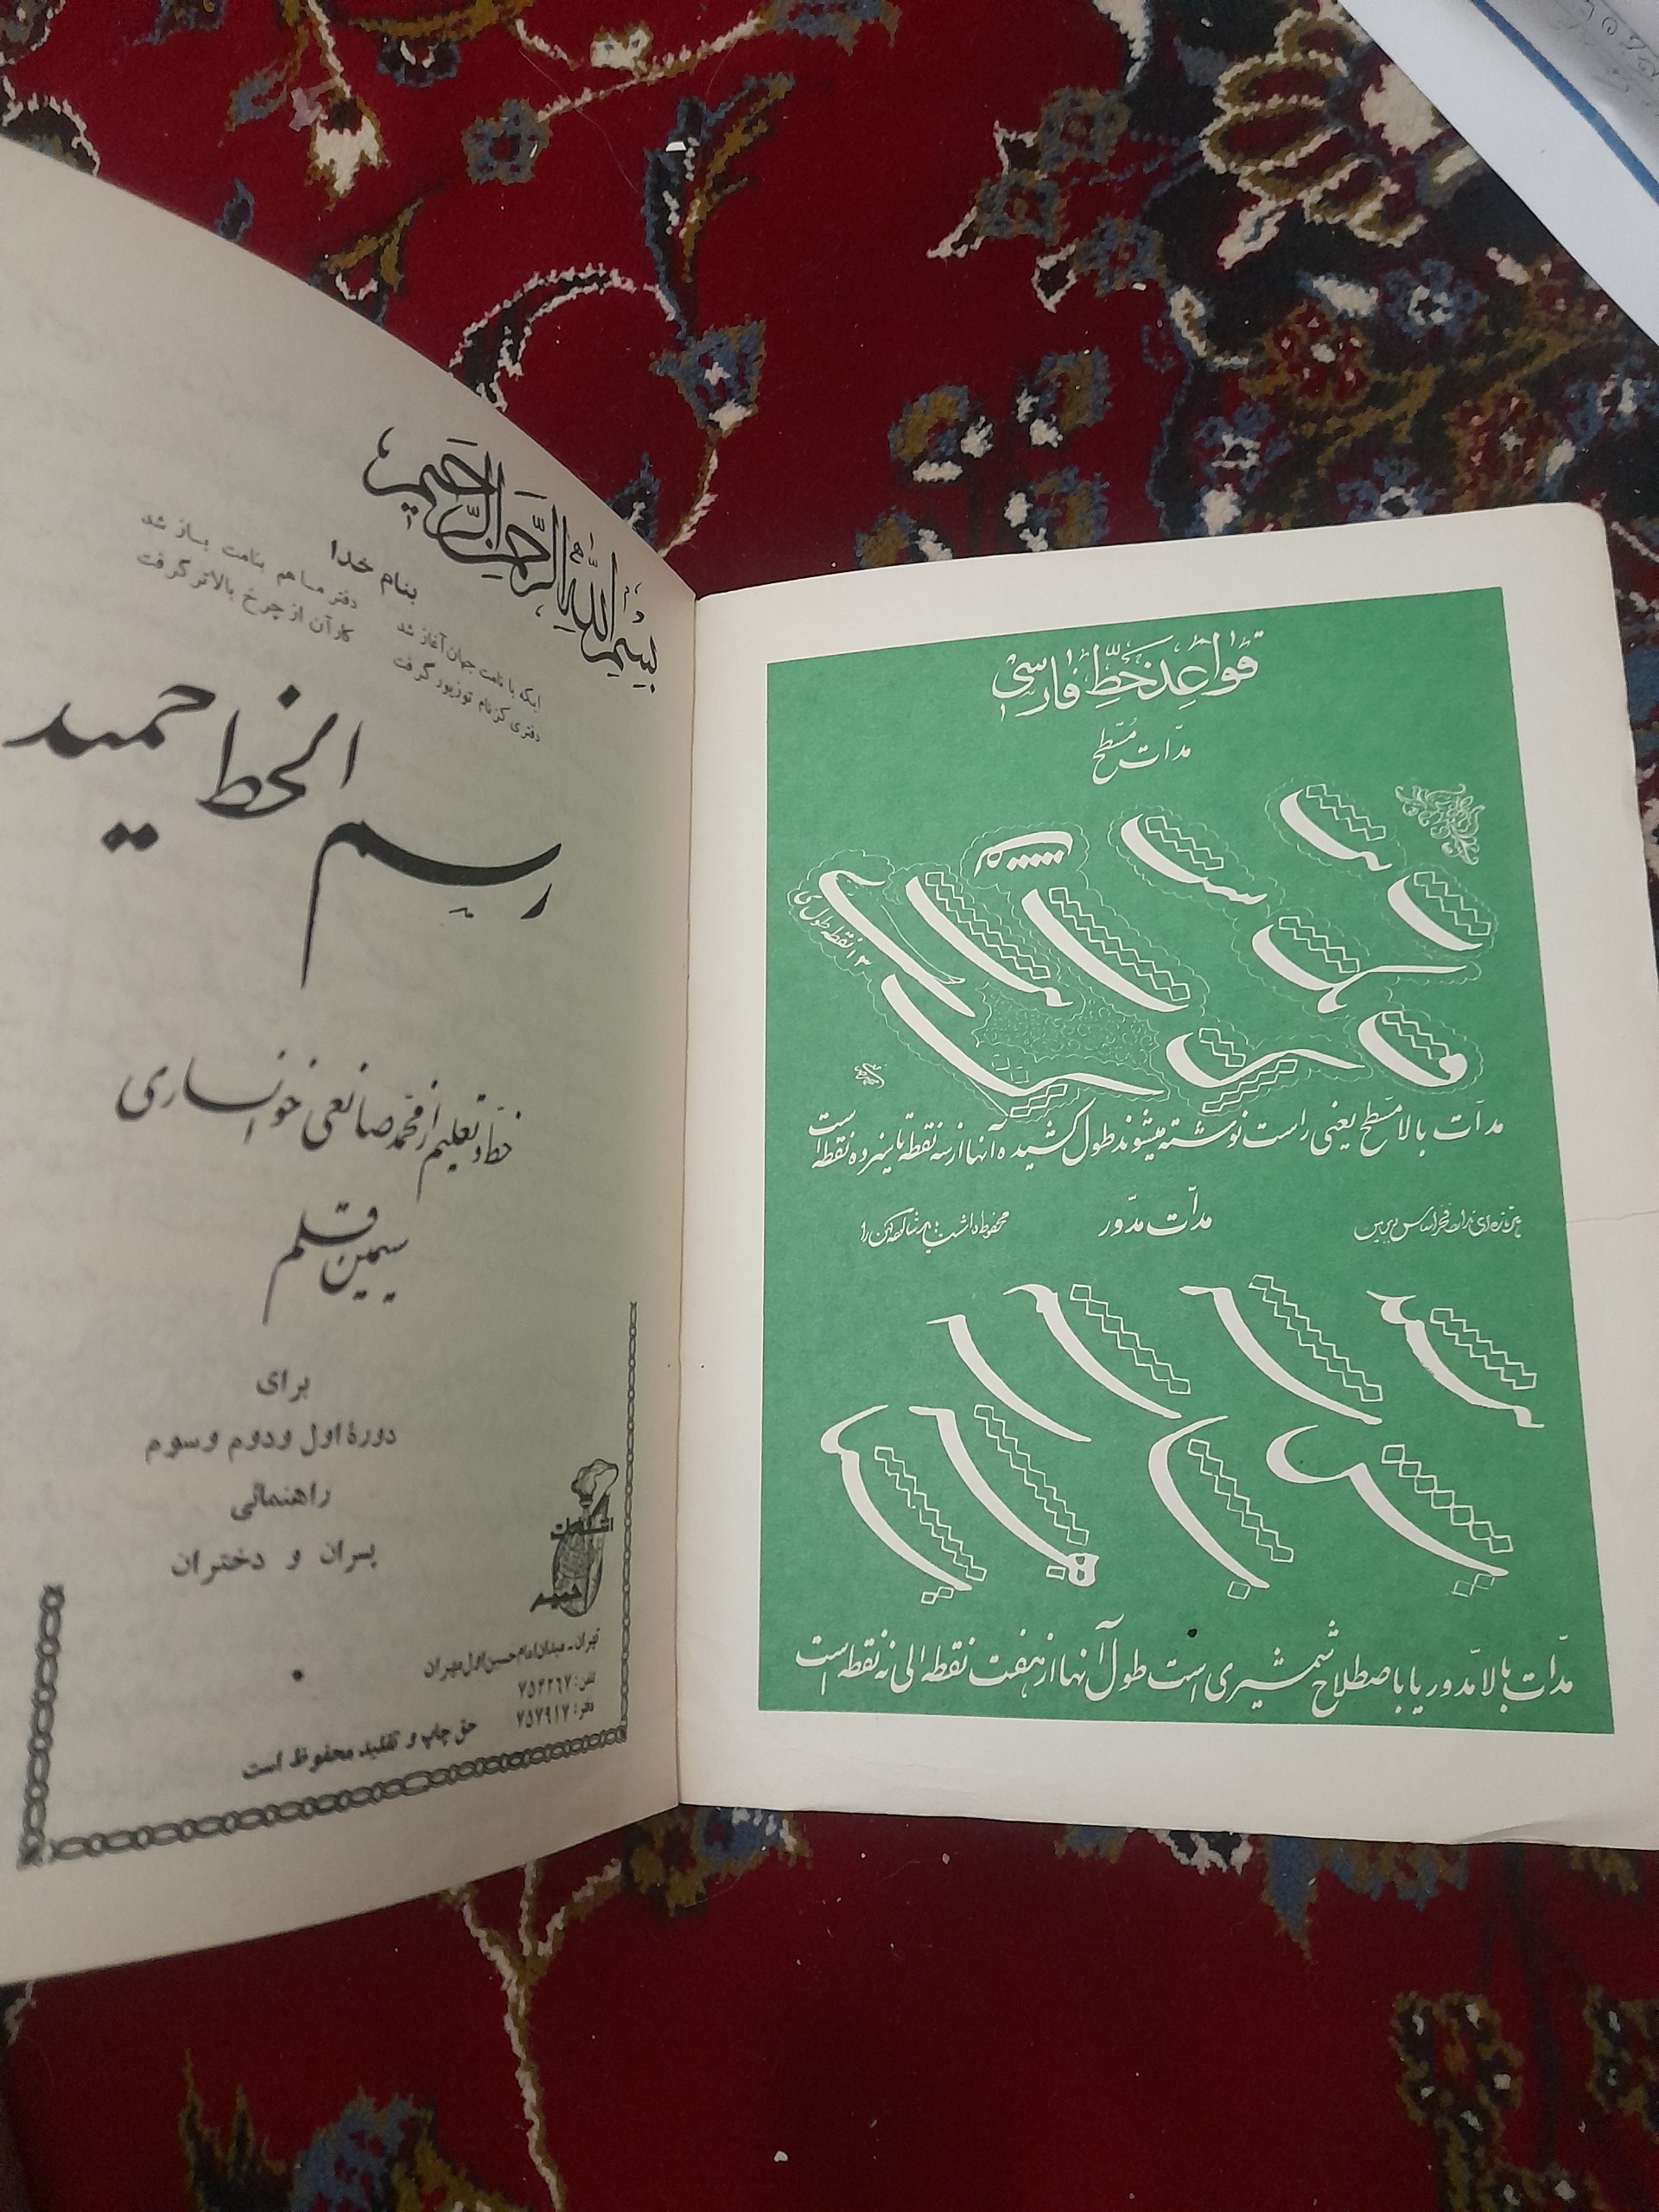 بِسْمِ اللهِ الرَّحْمنِ الرَّحیم
بنام خدا
ایکه با نامت جهان آغاز شد دفتر ما هم بنامت باز شد
دفتری کز نام تو زیور گرفت کار آن از چرخ بالاتر گرفت
رسم الخط حمید
خط و تعلیم از محمد صانعی خوانساری
سیمین قلم
برای
دورهٔ اول و دوم و سوم
راهنمائی
پسران و دختران
انتشارات
حمید
تهران - میدان امام حسین اول تهران
تلفن: ۷۵۳۲۶۷
دفتر: ۷۵۷۹۱۷
حق چاپ و تقلید محفوظ است
قواعد خط فارسی
مدّات مُسَطّح
۱۳ نقطه طول ی
مدّات بالا مسَطح یعنی راست نوشته میشوند طول کشیده آنها از سه نقطه تا سیزده نقطه است
مدّات مدّور
مدّات بالا مدّور یا باصطلاح شمشیری است طول آنها از هفت نقطه الی نه نقطه است